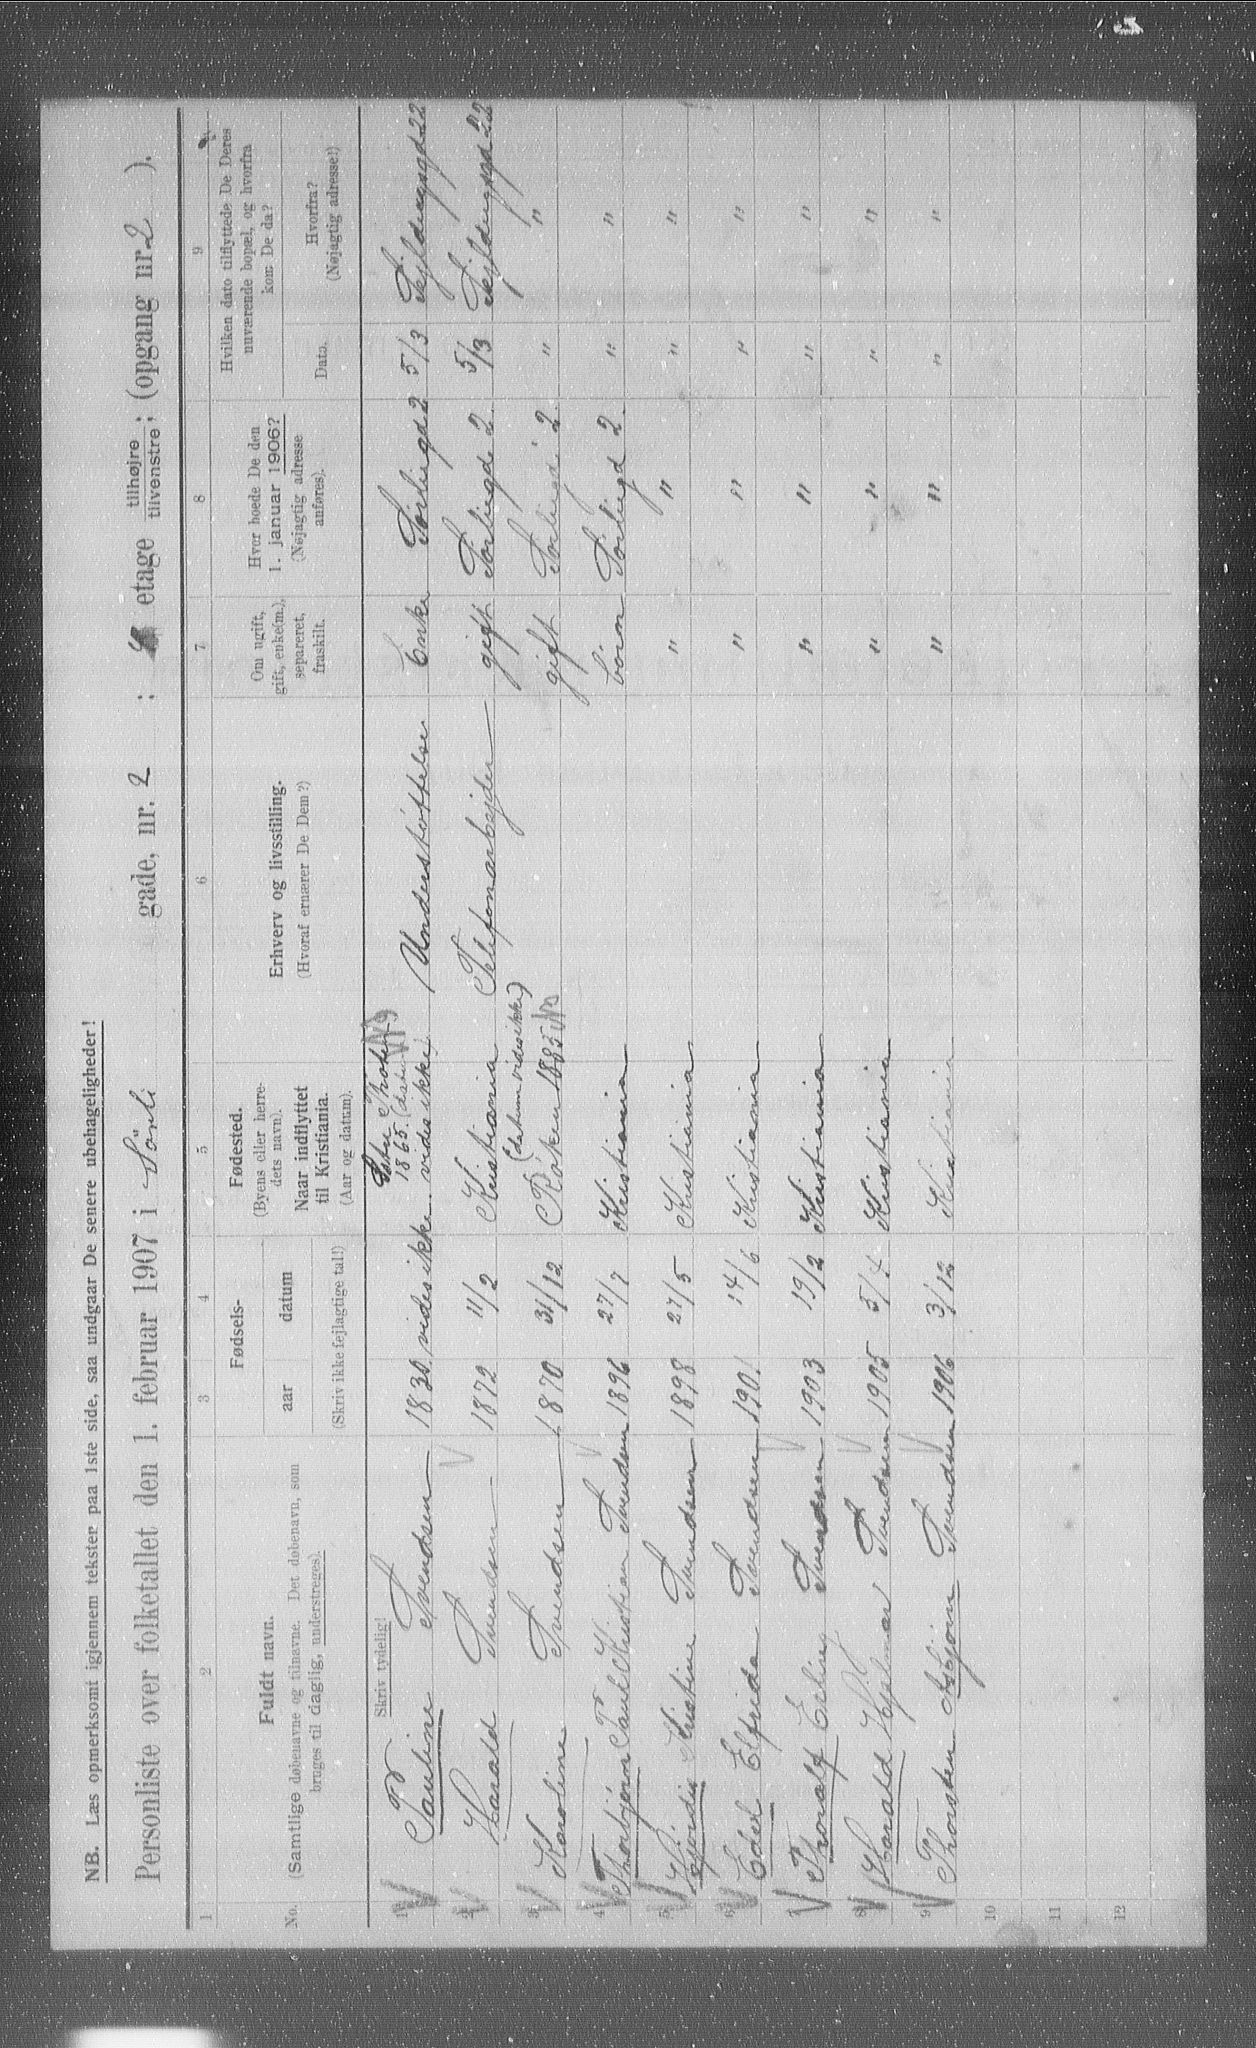 NB. Læs opmerksomt igjennem tekster paa 1ste side, saa undgaar De senere ubehageligheder!
Personliste over folketallet den 1. februar 1907 i Sörli gade, nr. 2 : etage tilhøjre tilvenstre; (opgang nr 2 ).
1 2 3 4 5 6 7 8 9
No. Fuldt navn. (Samtlige døbenavne og tilnavne. Det døbenavn, som bruges til daglig, understreges).
Fødsels- aar datum
(Skriv ikke fejlagtige tal!)
Fødested. (Byens eller herredets navn). Naar indflyttet til Kristiania. (Aar og datum).
Erhverv og livsstilling. (Hvoraf ernærer De Dem?)
Om ugift, gift, enke(m.), separeret, fraskilt.
Hvor boede De den 1. januar 1906? (Nøjagtig adresse anføres).
Hvilken dato tilflyttede De Deres nuværende bopæl, og hvorfra kom De da?
Dato. Hvorfra? (Nøjagtig adresse!)
Skriv tydelig!
1 Pauline Svendsen 1830 vides ikke 1865 (datum vides ikke) Understøttelse Enke Sörligd 2 5/3 Skjoldungsgd 22
2 Harald Svendsen 1872 11/2 Kristiania Telefonarbejder gift Sörligd 2 5/3
3 Karoline Svendsen 1870 31/12 Röken 1885 (datum vides ikke) gift Sörligd 2 " "
4 Thorbjörn Paul Kristian Svendsen 1896 27/7 Kristiania börn Sörligd 2 " "
5 Hjördis Kristine Svendsen 1898 27/5 Kristiania " " " "
6 Edel Elfrida Svendsen 1901 14/6 Kristiania " " " "
7 Thoralf Erling Svendsen 1903 19/2 Kristiania " " " "
8 Harald Hjalmar Svendsen 1905 5/4 Kristiania " " " "
9 Thorsten Asbjörn Svendsen 1906 3/12 Kristiania " " " "
10
11
12